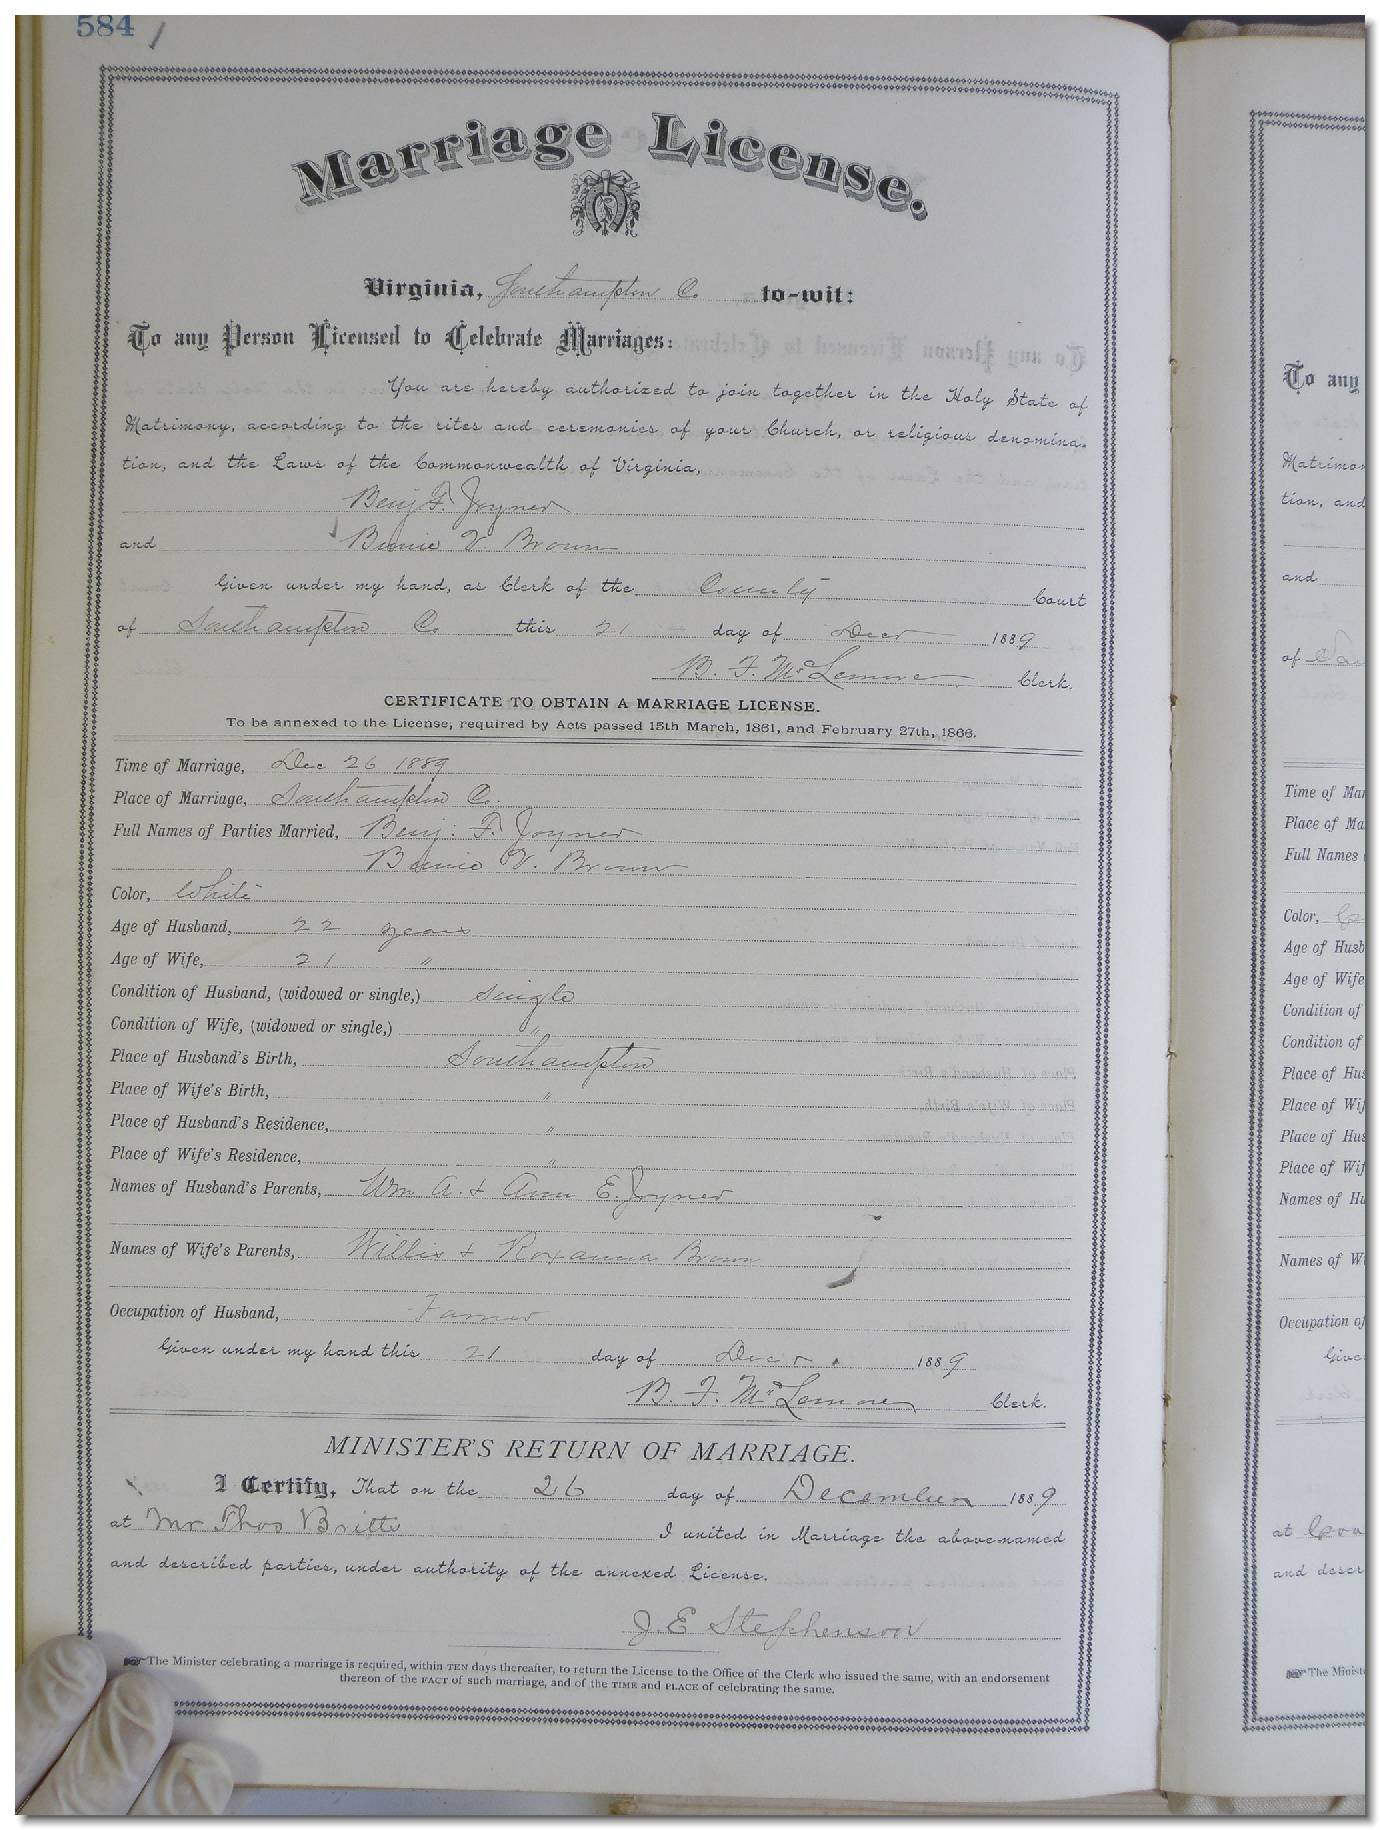 584
Marriage License.
Virginia, Southampton Co. to-wit:
To any Person Licensed to Celebrate Marriages:
You are hereby authorized to join together in the Holy State of
Matrimony, according to the rites and ceremonies of your Church, or religious denomina-
tion, and the Laws of the Commonwealth of Virginia,
Benj F. Joyner
and V. Brown
Given under my hand, as Clerk of the County Court
of Southampton Co this 21 day of Decr 1889
B. F. McLemore Clerk.
CERTIFICATE TO OBTAIN A MARRIAGE LICENSE.
To be annexed to the License, required by Acts passed 15th March, 1861, and February 27th, 1866.
Time of Marriage, Dec 26 1889
Place of Marriage, Southampton Co.
Full Names of Parties Married, Benj. F. Joyner
V. Brown
Color, White
Age of Husband, 22 years
Age of Wife, 21 "
Condition of Husband, (widowed or single,) Single
Condition of Wife, (widowed or single,) "
Place of Husband's Birth, Southampton
Place of Wife's Birth, "
Place of Husband's Residence, "
Place of Wife's Residence, "
Names of Husband's Parents, Wm A. & Ann E. Joyner
Names of Wife's Parents, Willis & Roxanna Brown
Occupation of Husband, Farmer
Given under my hand this 21 day of Decr. 1889
B. F. McLemore Clerk.
MINISTER'S RETURN OF MARRIAGE.
I Certify, That on the 26 day of December 1889
at Mr Thos Britts I united in Marriage the above-named
and described parties, under authority of the annexed License.
J. E Stephenson
The Minister celebrating a marriage is required, within TEN days thereafter, to return the License to the Office of the Clerk who issued the same, with an endorsement
thereon of the FACT of such marriage, and of the TIME and PLACE of celebrating the same.
To any
Matrimon
tion, and
and
of
Time of Mar
Place of Ma
Full Names
Color,
Age of Husb
Age of Wife
Condition of
Condition of
Place of Hus
Place of Wif
Place of Hus
Place of Wif
Names of Hu
Names of W
Occupation of
Give
at
and descr
The Minist